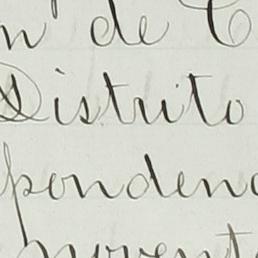 n de C
Distrito
pondenc